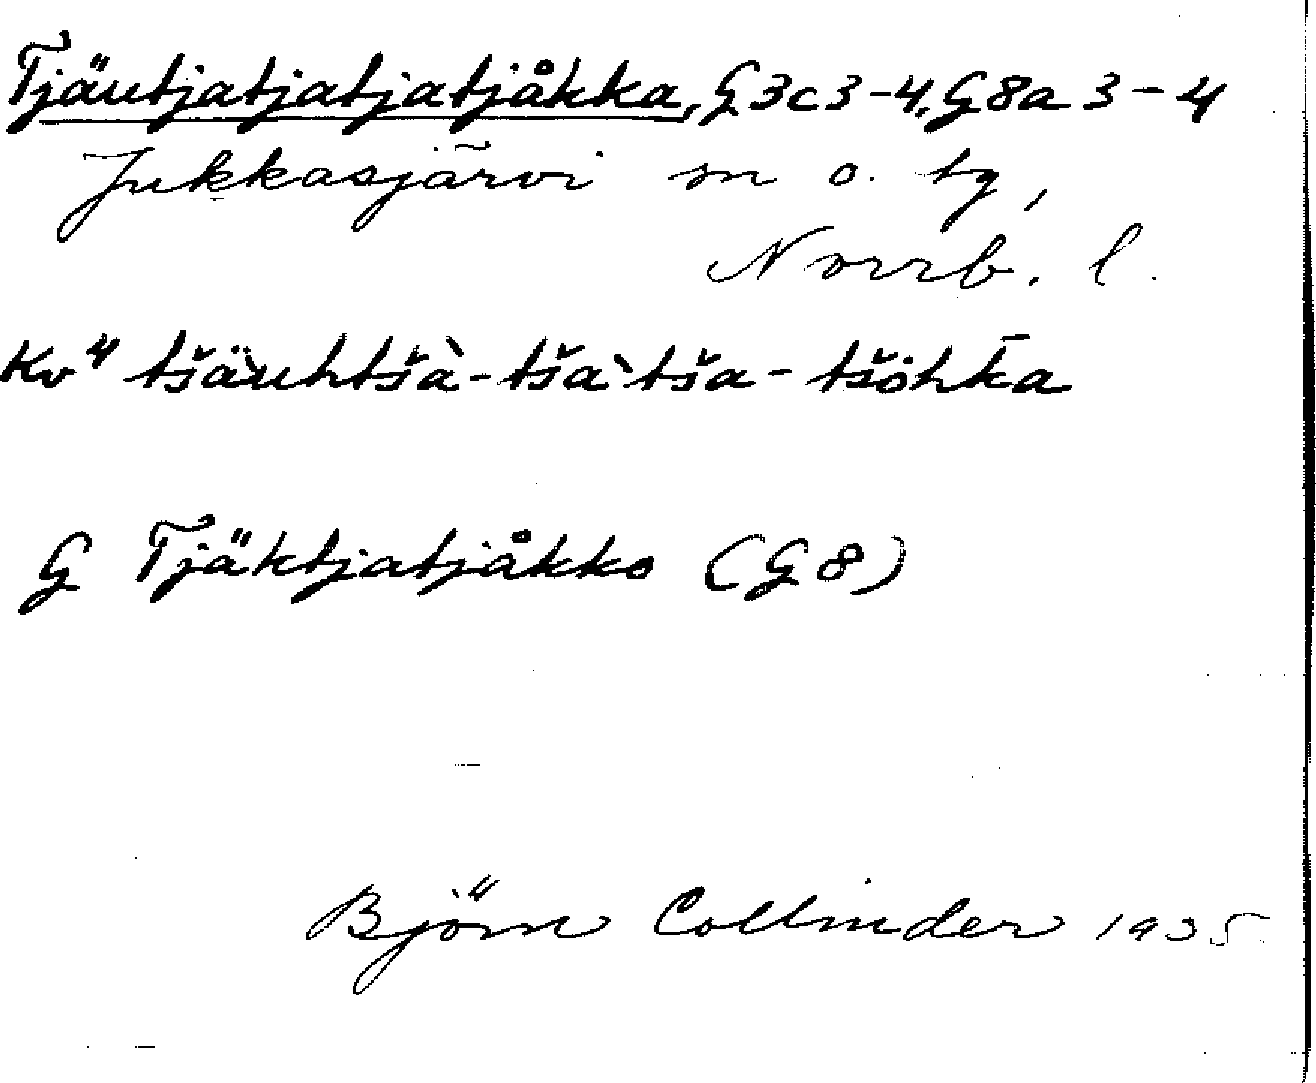 Tjäutjatjatjatjåkka, G3c3-4, G8a3-4
Jukkasjärvi sn o. tg,
Norrb. l.
Kv⁴ tšäuhtšà-tša`tša-tšȯhk̄a
G Tjäktjatjåkko (G8)
Björn Collinder 1935